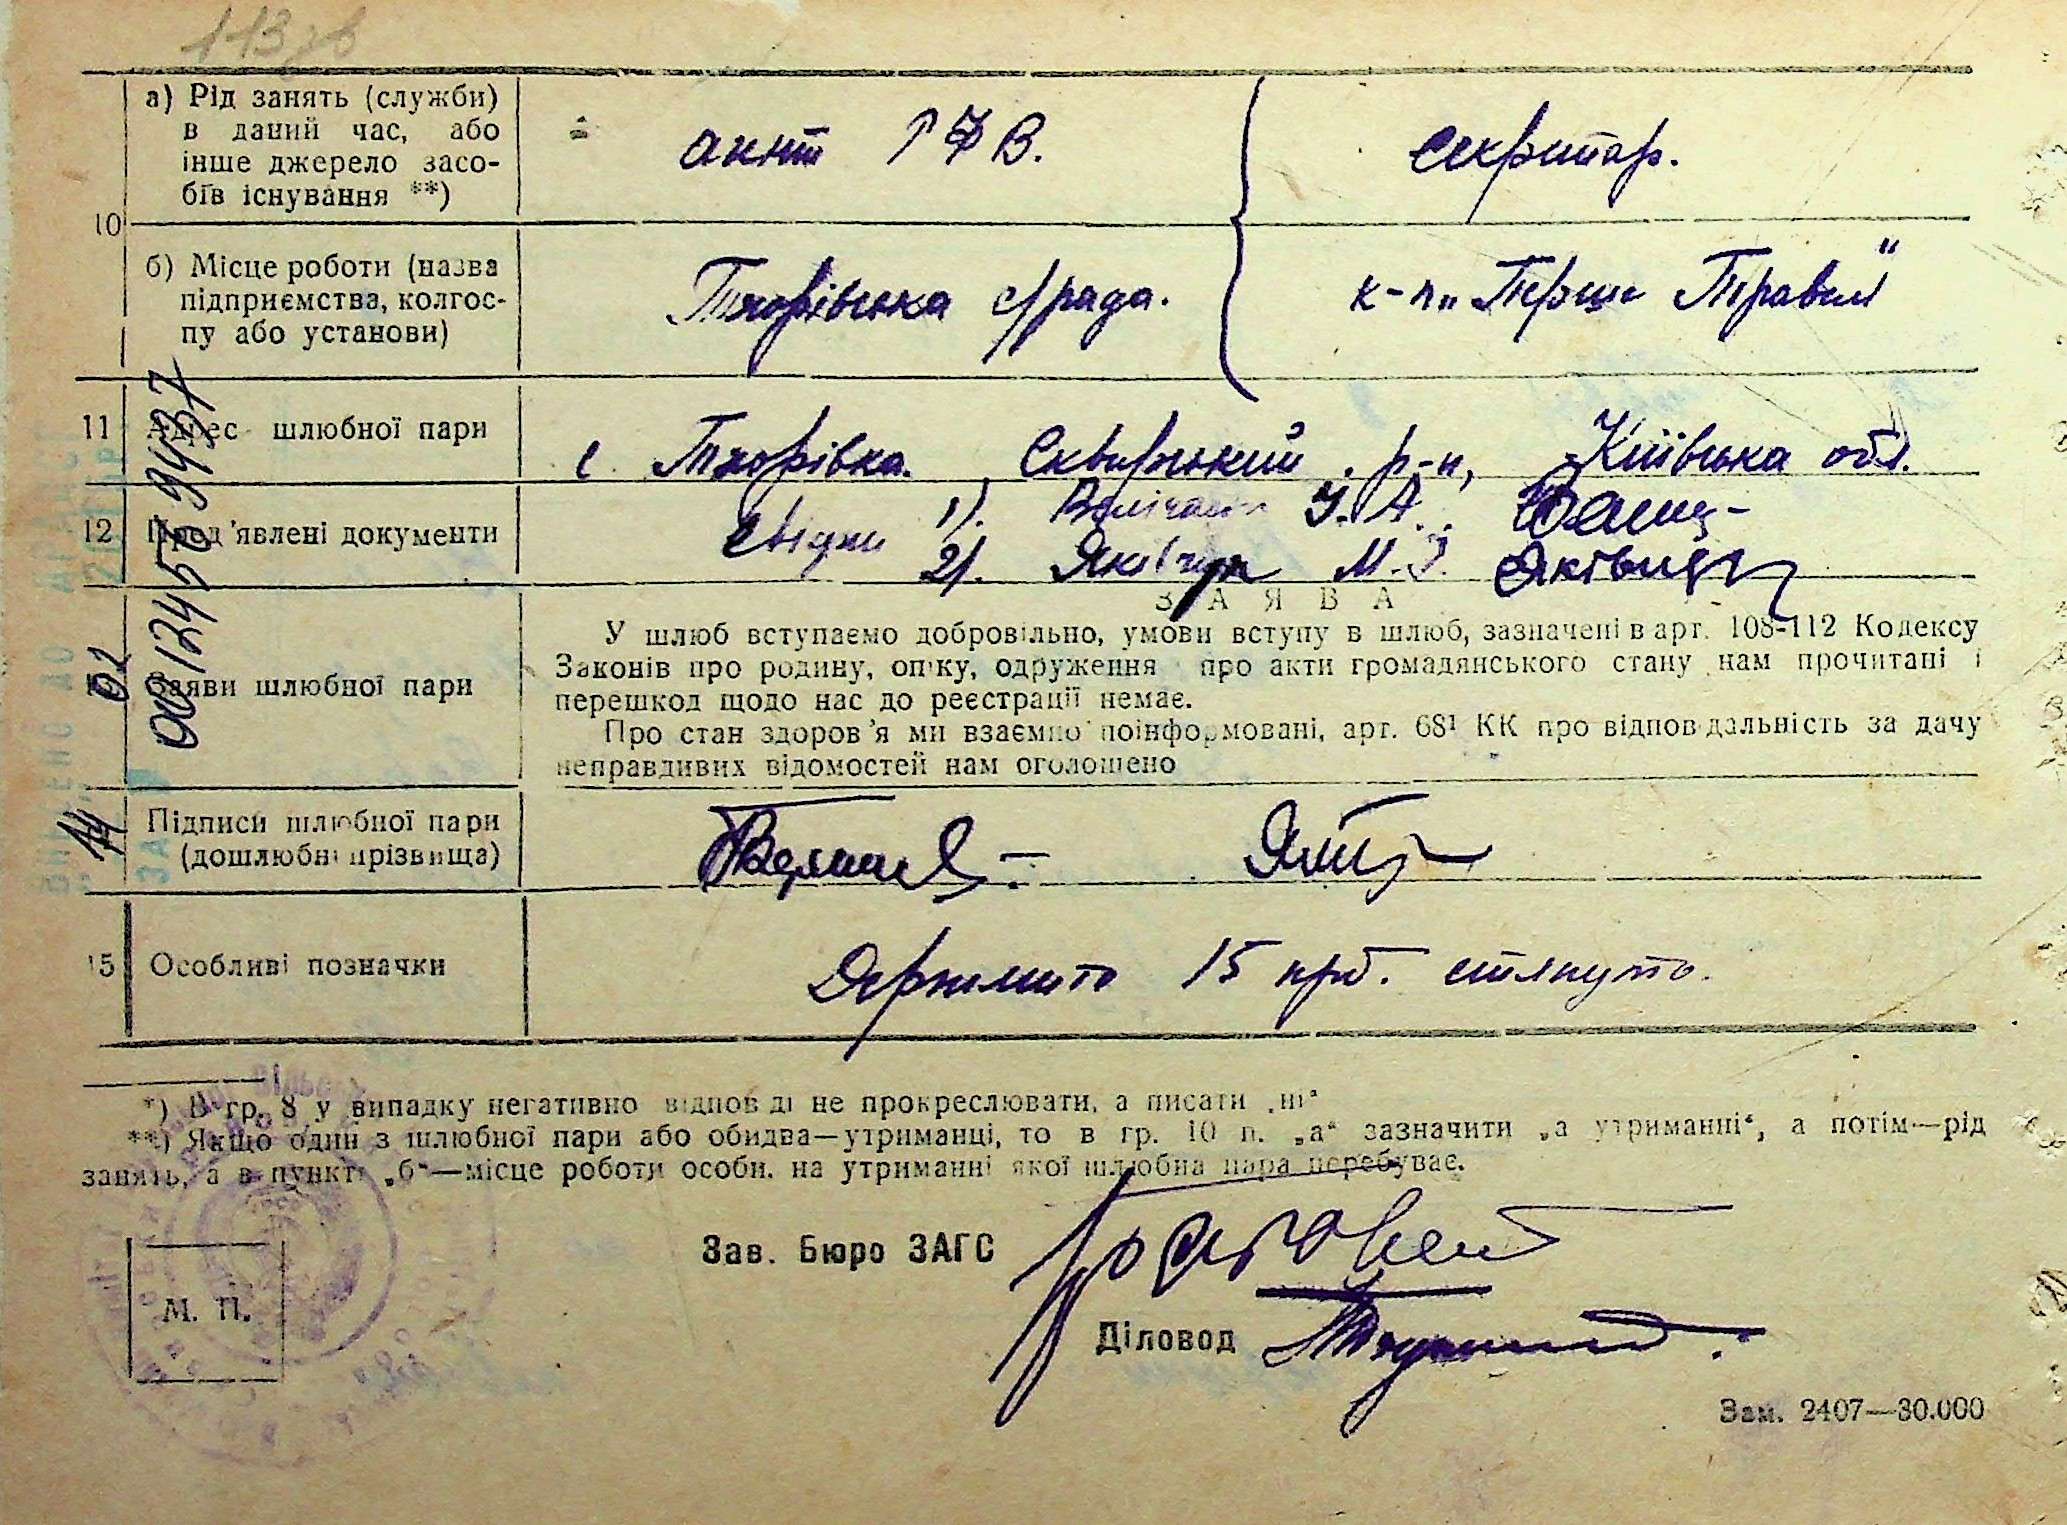 113 зв
а) Рід занять (служби)
в даний час, або
інше джерело засо-
бів існування **)
агент РФВ.
секритар.
10
б) Місце роботи (назва
підприємства, колгос-
пу або установи)
Тхорівська с/рада.
к-п „Перше Травня"
11 Адрес шлюбної пари
с. Тхорівка. Сквирський р-н, Київська обл.
12 Пред'явлені документи
Свідки 1). І. А.
2). Яківчук М. І.
ЗАЯВА
Заяви шлюбної пари
У шлюб вступаємо добровільно, умови вступу в шлюб, зазначені в арт. 108-112 Кодексу
Законів про родину, опіку, одруження про акти громадянського стану нам прочитані і
перешкод щодо нас до реєстрації немає.
Про стан здоров'я ми взаємно поінформовані, арт. 68¹ КК про відповідальність за дачу
неправдивих відомостей нам оголошено
14 Підписи шлюбної пари
(дошлюбні прізвища)
15 Особливі позначки
Держмито 15 крб. стягнуто.
00124569437
*) В гр. 8 у випадку негативно відповіді не прокреслювати, а писати „ні"
**) Якщо один з шлюбної пари або обидва—утриманці, то в гр. 10 п. „а" зазначити „а утриманні", а потім—рід
занять, а в пункті „б"—місце роботи особи, на утриманні якої шлюбна пара перебуває.
Зав. Бюро ЗАГС
М. П.
Діловод
Зам. 2407—30.000